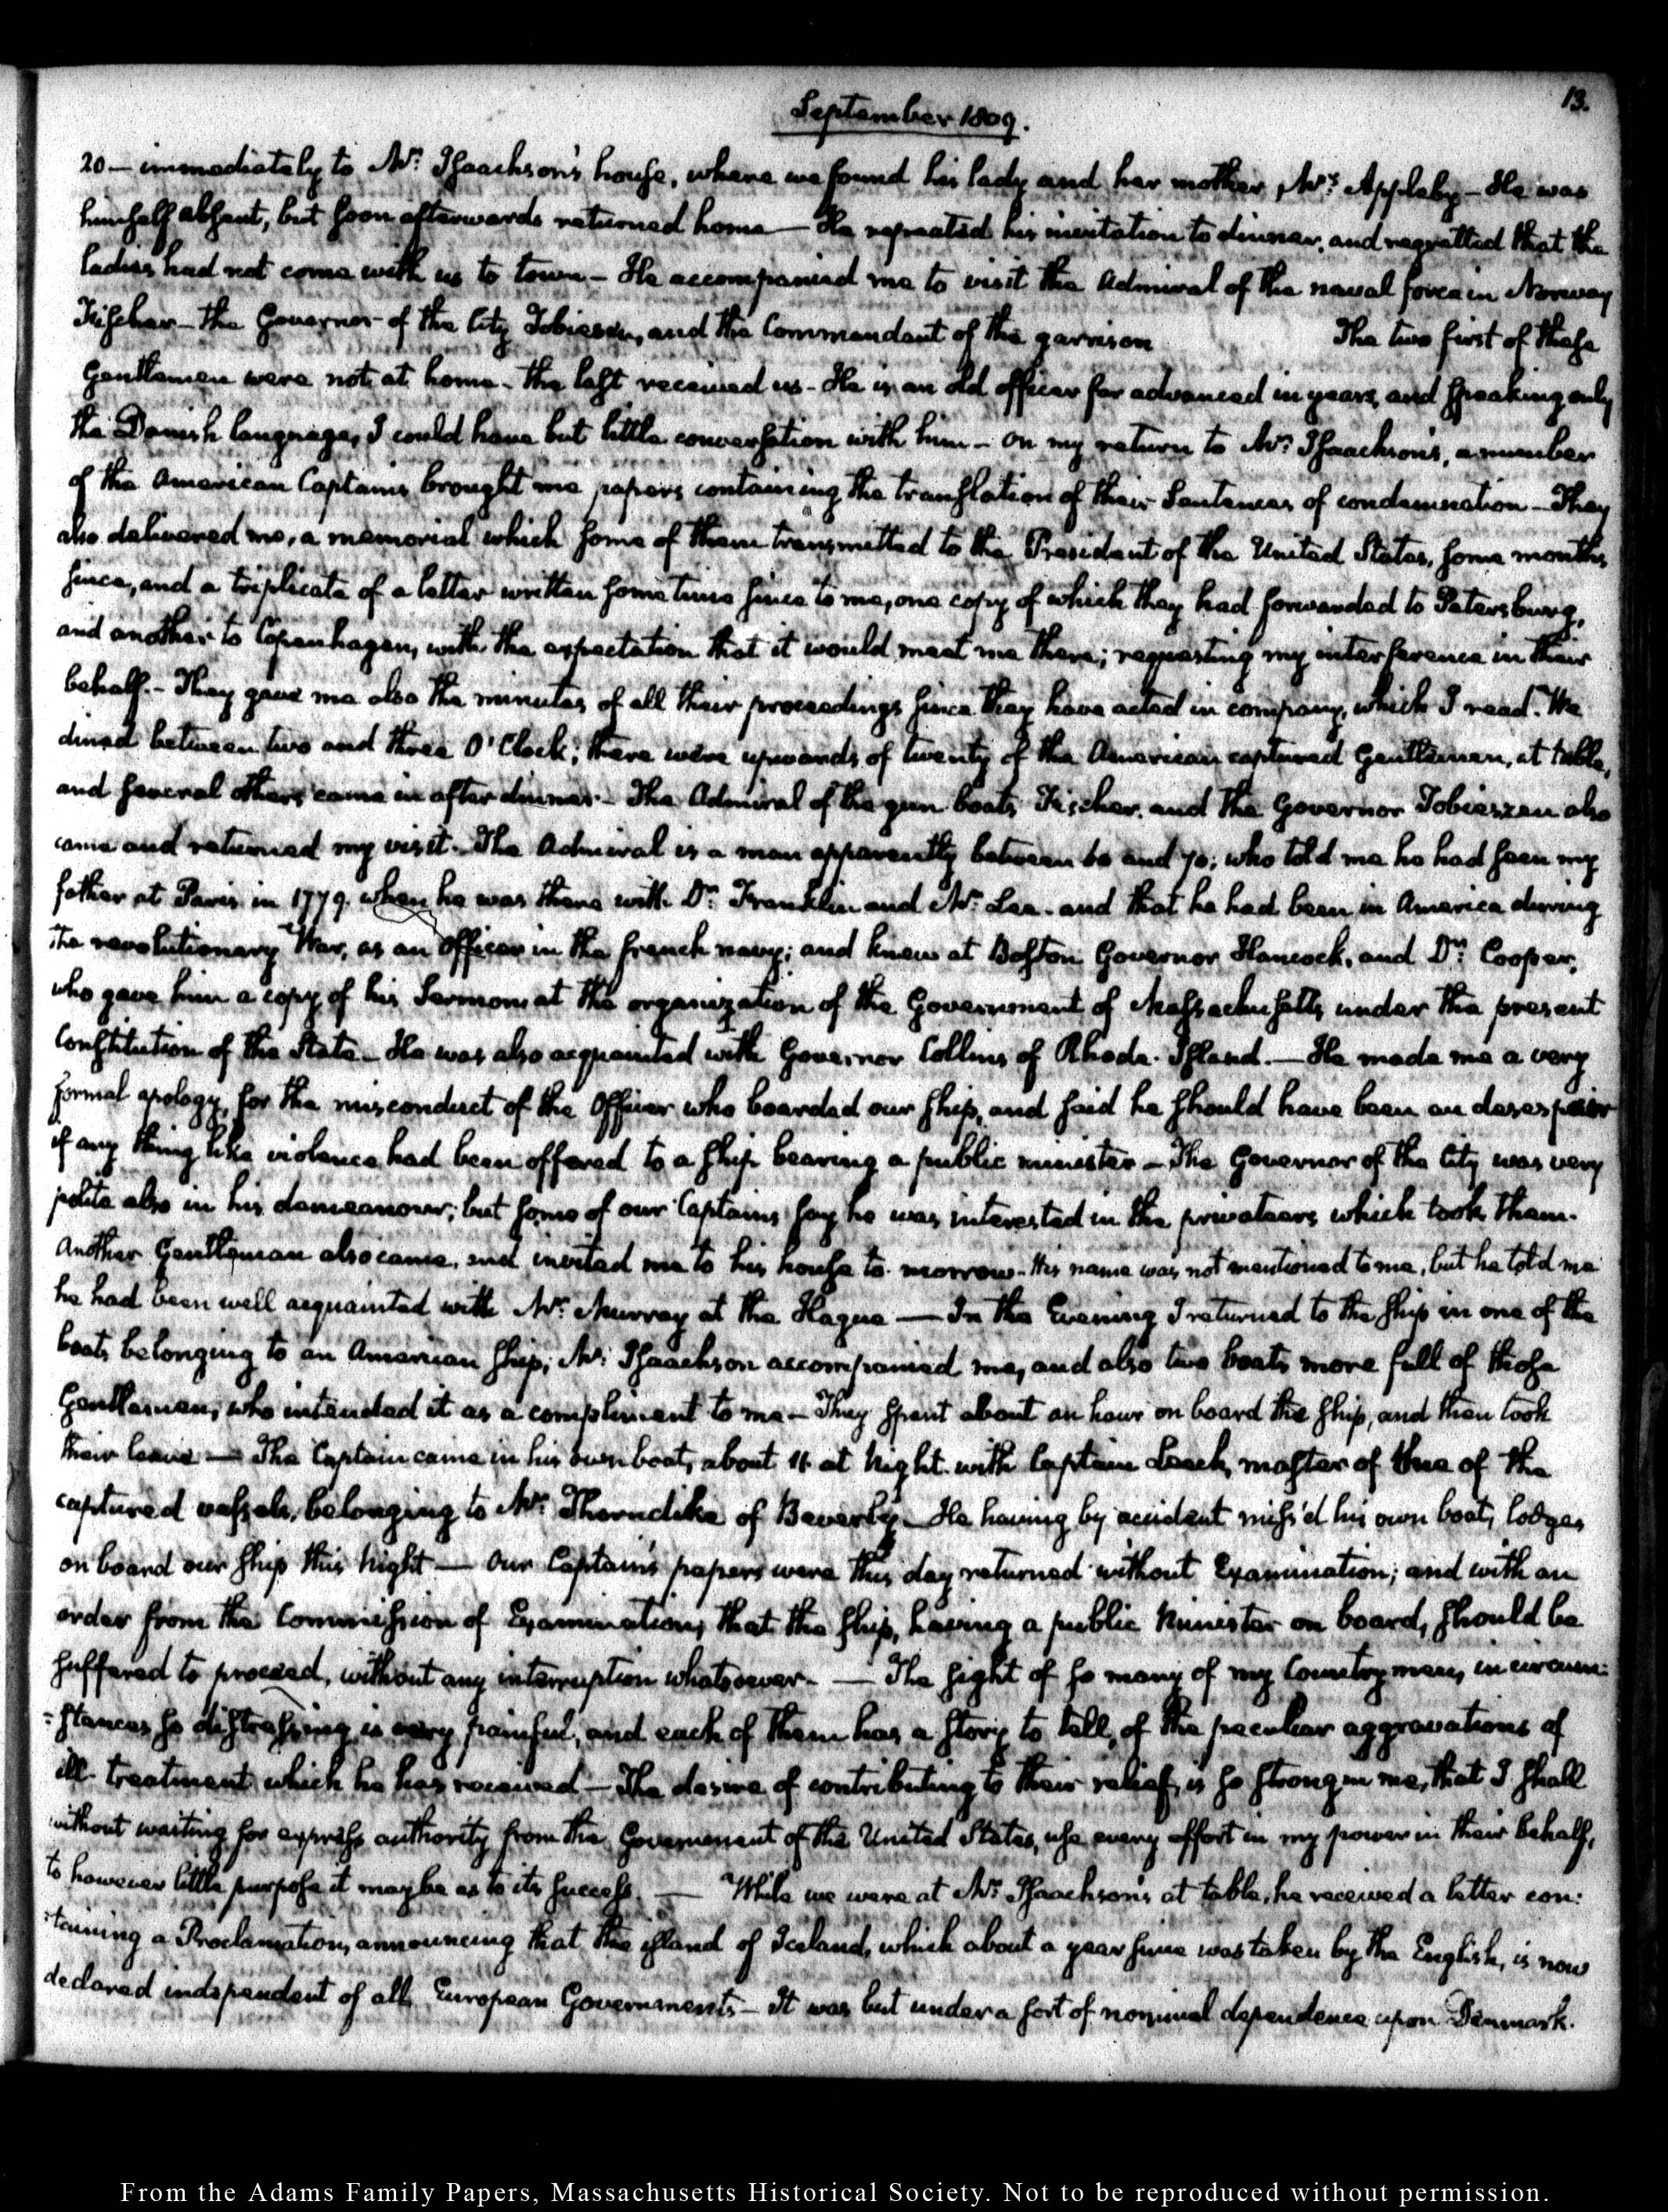 13.
September 1809.
20 — immediately to Mr: Isaachson's house, where we found his lady and her mother, Mrs: Appleby — He was
himself absent, but soon afterwards returned home — He repeated his invitation to dinner, and regretted that the
ladies had not come with us to town — He accompanied me to visit the Admiral of the naval force in Norway
Fischer — the Governor of the City Tobiesen, and the Commandant of the garrison The two first of these
Gentlemen were not at home — the last received us — He is an old officer far advanced in years, and speaking only
the Danish language, I could have but little conversation with him — On my return to Mr: Isaachson's, a number
of the American Captains brought me papers containing the translation of their Sentences of condemnation — They
also delivered me, a memorial which some of them transmitted to the President of the United States, some months
since, and a triplicate of a letter written some time since to me, one copy of which they had forwarded to Petersburg,
and another to Copenhagen, with the expectation that it would meet me there; requesting my interference in their
behalf. — They gave me also the minutes of all their proceedings since they have acted in company, which I read. We
dined between two and three O'Clock; there were upwards of twenty of the American captured Gentlemen, at table,
and several others came in after dinner — The Admiral of the gun boats Fischer, and the Governor Tobieszen also
came and returned my visit. The Admiral is a man apparently between 60 and 70; who told me he had seen my
father at Paris in 1779. when he was there with Dr: Franklin and Mr: Lee. and that he had been in America during
the revolutionary War, as an Officer in the french navy; and knew at Boston Governor Hancock, and Dr: Cooper,
who gave him a copy of his Sermon at the organization of the Government of Massachusetts under the present
Constitution of the State — He was also acquainted with Governor Collins of Rhode-Island. — He made me a very
formal apology, for the misconduct of the Officer who boarded our ship, and said he should have been au desespoir
if any thing like violence had been offered to a ship bearing a public minister — The Governor of the City was very
polite also in his demeanour; but some of our Captains say he was interested in the privateers which took them.
Another Gentleman also came, and invited me to his house to-morrow — His name was not mentioned to me, but he told me
he had been well acquainted with Mr: Murray at the Hague — In the Evening I returned to the ship in one of the
boats belonging to an American ship; Mr: Isaachson accompanied me, and also two boats more full of those
Gentlemen, who intended it as a compliment to me — They spent about an hour on board the ship, and then took
their leave — The Captain came in his own boat, about 11 at Night with Captain Leech, master of one of the
captured vessels, belonging to Mr: Thorndike of Beverly — He having by accident miss'd his own boat, lodges
on board our ship this Night — Our Captain's papers were this day returned without Examination; and with an
order from the Commission of Examination, that the ship, having a public Minister on board, should be
suffered to proceed, without any interruption whatsoever. — The sight of so many of my Countrymen, in circum:
:stances so distressing is very painful, and each of them has a story to tell, of the peculiar aggravations of
ill-treatment which he has received — The desire of contributing to their relief, is so strong in me, that I shall
without waiting for express authority from the Government of the United States, use every effort in my power in their behalf,
to however little purpose it may be as to its success. — While we were at Mr: Isaachson's at table, he received a letter con:
:taining a Proclamation, announcing that the island of Iceland, which about a year since was taken by the English, is now
declared independent of all European Governments — It was but under a sort of nominal dependence upon Denmark.
From the Adams Family Papers, Massachusetts Historical Society. Not to be reproduced without permission.